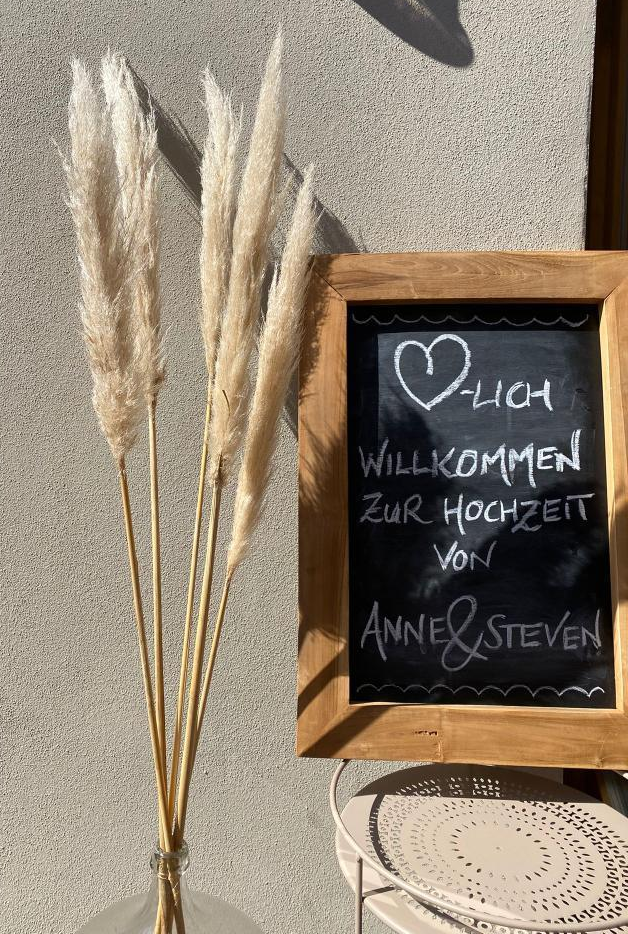 ♡-LICH
WILLKOMMEN
ZUR HOCHZEIT
VON
ANNE & STEVEN